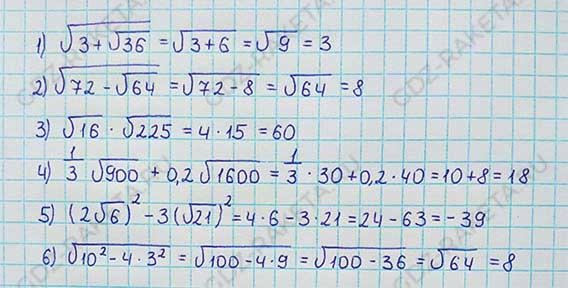 1) √(3 + √36) = √(3+6) = √9 = 3
2) √(72 - √64) = √(72 - 8) = √64 = 8
3) √16 · √225 = 4 · 15 = 60
4) 1/3 √900 + 0,2√1600 = 1/3 · 30 + 0,2 · 40 = 10 + 8 = 18
5) (2√6)² - 3(√21)² = 4 · 6 - 3 · 21 = 24 - 63 = - 39
6) √(10² - 4 · 3²) = √(100 - 4 · 9) = √(100 - 36) = √64 = 8
GDZ-RAKETA.RU